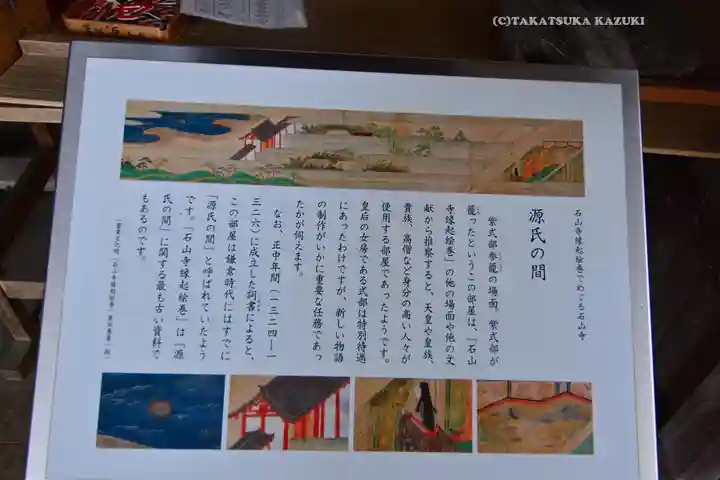 (C)TAKATSUKA KAZUKI
石山寺縁起絵巻でめぐる石山寺
源氏の間
紫式部参籠の場面。紫式部が
籠ったというこの部屋は、『石山
寺縁起絵巻』の他の場面や他の文
献から推察すると、天皇や皇族、
貴族、高僧など身分の高い人々が
使用する部屋であったようです。
皇后の女房である式部は特別待遇
にあったわけですが、新しい物語
の制作がいかに重要な任務であっ
たかが伺えます。
なお、正中年間（一三二四―一
三二六）に成立した詞書によると、
この部屋は鎌倉時代にはすでに
「源氏の間」と呼ばれていたよう
です。『石山寺縁起絵巻』は『源
氏の間』に関する最も古い資料で
もあるのです。